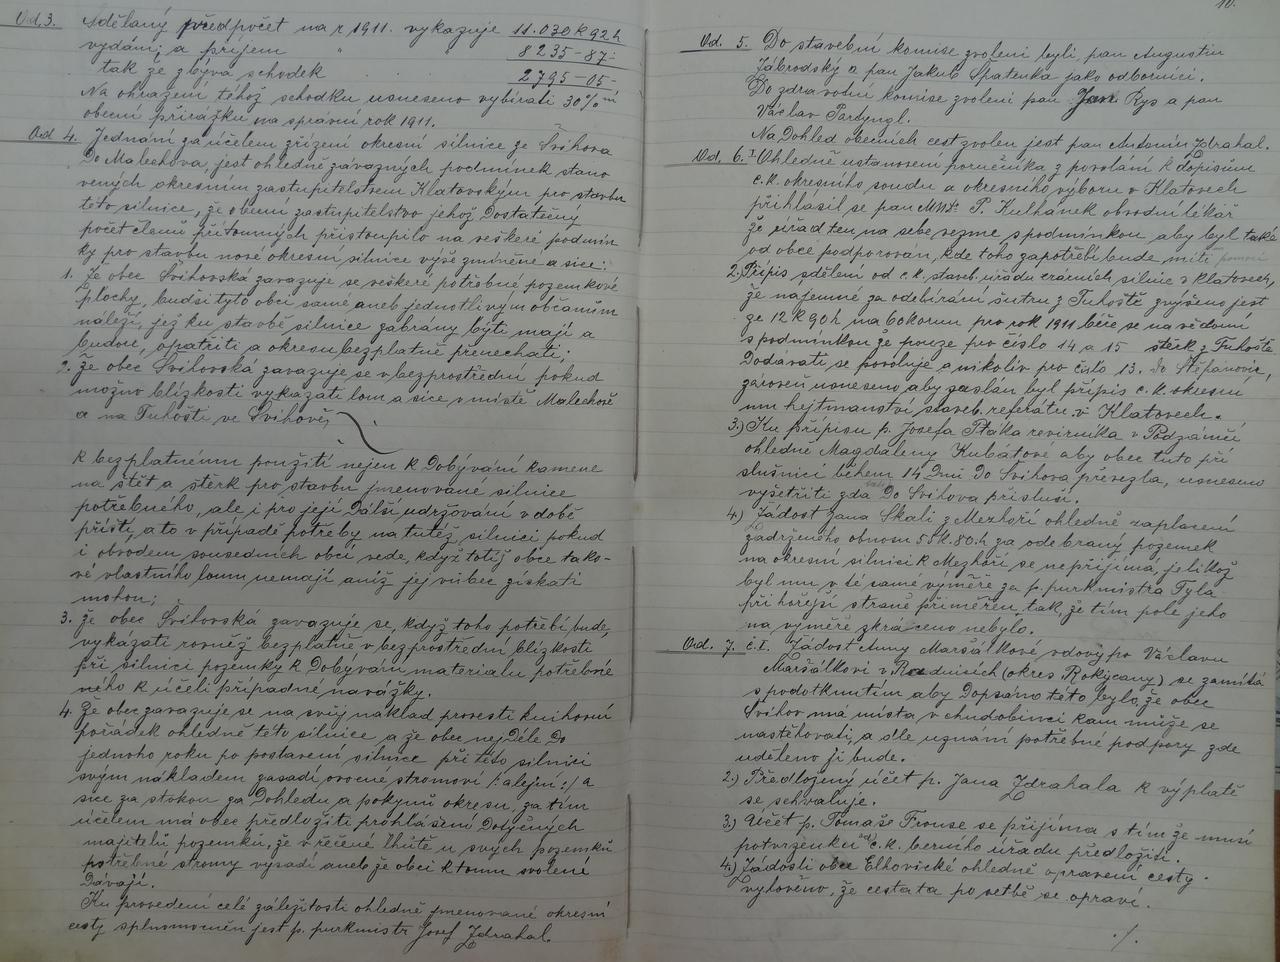 Od. 3. Sdělaný předpočet na r 1911. vykazuje 11.030 K 92 h
vydání a příjem " " 8235-87-
tak že zbývá schodek . . 2795-05-
Na uhražení téhož schodku usneseno vybírati 30% ní
obecní přirážku na správní rok 1911.
Od 4. Jednání za účelem zřízení okresní silnice ze Švihova
Do Malechova, jest ohledně závazných podmínek stano
vených okresním zastupitelstvem Klatovským pro stavbu
této silnice, že obecní zastupitelstvo jehož Dostatečný
počet členů přítomných přistoupilo na veškeré podmín
ky pro stavbu nové okresní silnice výše zmíněné a sice:
1. Že obec Švihovská zavazuje se veškeré potřebné pozemkové
plochy, budsi tyto obci samé aneb jednotlivým občanům
náleží, jež ku stavbě silnice zabrány býti mají a
budou, opatřiti a okresu bezplatně přenechati;
2. Že obec Švihovská zavazuje se v bezprostřední pokud
možno blízkosti vykázati lom a sice v místě Malechově
a na Tuhošti ve Švihově,
k bezplatnému použití nejen k Dobývání kamene
na štět a štěrk pro stavbu jmenované silnice
potřebného, ale i pro její Další udržování v době
příští, a to v případě potřeby na tutéž silnici pokud
i obvodem sousedních obcí vede, když totiž obce tako-
vé vlastního lomu nemají aniž jej vůbec získati
mohou;
3. Že obec Švihovská zavazuje se, když toho potřebí bude,
vykázati rovněž bezplatně v bezprostřední blízkosti
při silnici pozemky k Dobývání materialu potřebné
ného k účeli případné navážky.
4. Že obec zavazuje se na svůj náklad provesti knihovní
pořádek ohledně této silnice a že obec nejdéle Do
jednoho roku po postavení silnice při této silnici
svým nákladem zasadí ovocné stromoví /:alejní:/ a
sice za stokou za Dohledu a pokynů okresu, za tím
účelem má obec předložiti prohlášení Dotyčných
majitelů pozemků, že v řečené lhůtě u svých pozemků
potřebné stromy vysadí aneb že obci k tomu svolení
Dávají.
Ku provedení celé záležitosti ohledně jmenované okresní
cesty splnomocněn jest p. purkmistr Josef Zdrahal.
10.
Od. 5. Do stavební komise zvoleni byli, pan Augustin
Zábrodský a pan Jakub Špatenka jako odborníci.
Do zdravotní komise zvoleni pan Jan Rys a pan
Václav Pardyngl.
Na Dohled obecních cest zvolen jest pan Antonín Zdrahal.
Od. 6. I. Ohledně ustanovení poručníka z povolání k dopisům
c.k. okresního soudu a okresního výboru v Klatovech
přihlásil se pan MUDr P. Kulhánek obvodní lékař
že úřad ten na sebe vezme s podmínkou aby byl také
od obce podporován, kde toho zapotřebí bude míti pomoci
2. Přípis sdělení od c.k. staveb. úřadu erárních silnic v Klatovech,
že nájemné za odebírání šutru z Tuhoště zvýšeno jest
ze 12 K 90 h na 60 korun pro rok 1911 béře se na vědomí
s podmínkou že pouze pro číslo 14 a 15 štěrk z Tuhoště
Dodávati se povoluje a nikoliv pro číslo 13. do Štěpánovic,
zároveň usneseno, aby zaslán byl přípis c.k. okresní
mu hejtmanství staveb. referátu v Klatovech.
3.) Ku přípisu p. Josefa Ptáka revírníka v Podzámčí
ohledně Magdaleny Kubátové aby obec tuto pří
slušnici během 14 Dnů Do Švihova převezla, usneseno
vyšetřiti zda Do Švihova přísluší.
4.) Žádost Jana Skali z Mezhoří ohledně zaplacení
zadrženého obnosu 5. K. 80. h za odebraný pozemek
na okresní silnici k Mezhoří se nepřijímá, jelikož
byl mu v té samé výměře za p. purkmistra Tyla
při hořejší straně přiměřen, tak, že tím pole jeho
na výměře zkráceno nebylo.
Od. 7. č. I. Žádost Anny Maršálkové vdovy po Václavu
Maršálkovi v Radnicích (okres Rokycany) se zamítá
s podotknutím aby Dopsáno této bylo, že obec
Švihov má místa v chudobinci kam může se
nastěhovati, a dle uznání potřebné podpory zde
uděleno jí bude.
2.) Předložený účet p. Jana Zdrahala k výplatě
se schvaluje.
3.) Účet p. Tomaše Frouse se přijímá s tím že musí
potvrzenku od c.k. berního úřadu předložiti.
4.) Žádosti obce Elhovické ohledně opravení cesty
vyhověno, že cesta ta po setbě se opraví.
./.